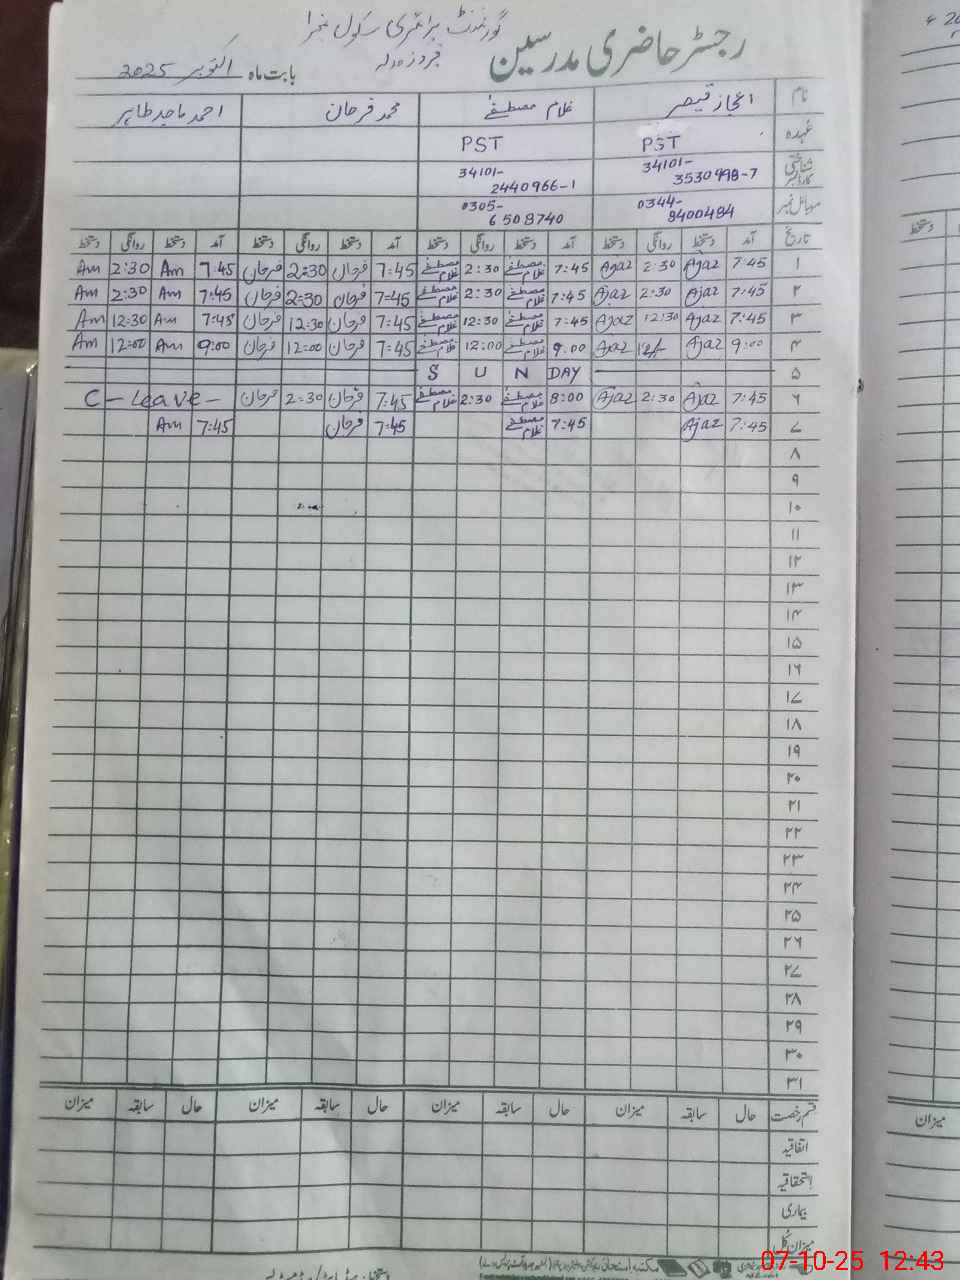 گورنمنٹ پرائمری سکول
رجسٹر حاضری مدرسین
بابت ماہ اکتوبر 2025
نام اعجاز قیصر غلام مصطفےٰ محمد فرحان احمد ماجد طاہر
عہدہ PST PST
شناختی کارڈ نمبر 34101-3530998-7 34101-2440966-1
موبائل نمبر 0344-8400484 0305-6508740
تاریخ آمد دستخط روانگی دستخط آمد دستخط روانگی دستخط آمد دستخط روانگی دستخط آمد دستخط روانگی دستخط
۱ 7:45 Ajaz 2:30 Ajaz 7:45 غلام مصطفےٰ 2:30 غلام مصطفےٰ 7:45 فرحان 2:30 فرحان 7:45 Am 2:30 Am
۲ 7:45 Ajaz 2:30 Ajaz 7:45 غلام مصطفےٰ 2:30 غلام مصطفےٰ 7:45 فرحان 2:30 فرحان 7:45 Am 2:30 Am
۳ 7:45 Ajaz 12:30 Ajaz 7:45 غلام مصطفےٰ 12:30 غلام مصطفےٰ 7:45 فرحان 12:30 فرحان 7:45 Am 12:30 Am
۴ 9:00 Ajaz 12/- Ajaz 9:00 غلام مصطفےٰ 12:00 غلام مصطفےٰ 7:45 فرحان 12:00 فرحان 9:00 Am 12:00 Am
۵ SUNDAY
۶ 7:45 Ajaz 2:30 Ajaz 8:00 غلام مصطفےٰ 2:30 غلام مصطفےٰ 7:45 فرحان 2:30 فرحان C-Leave-
۷ 7:45 Ajaz 7:45 غلام مصطفےٰ 7:45 فرحان 7:45 Am
۸
۹
۱۰
۱۱
۱۲
۱۳
۱۴
۱۵
۱۶
۱۷
۱۸
۱۹
۲۰
۲۱
۲۲
۲۳
۲۴
۲۵
۲۶
۲۷
۲۸
۲۹
۳۰
۳۱
قسم رخصت حال سابقہ میزان حال سابقہ میزان حال سابقہ میزان حال سابقہ میزان
اتفاقیہ
استحقاقیہ
بیماری
میزان کل
دستخط
میزان
07-10-25 12:43